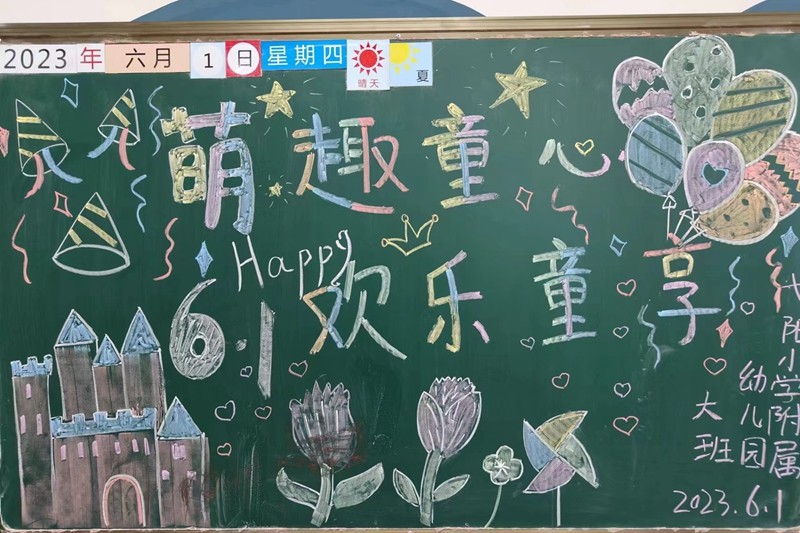 2023年六月1日星期四 晴天 夏
萌趣童心
Happy
6.1欢乐童享
小学附属
幼儿园
大班
2023.6.1